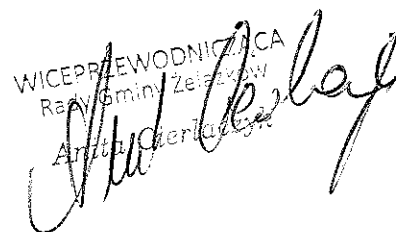 WICEPRZEWODNICZĄCA
Rady Gminy Żelazków
Anita Cierlaczyk